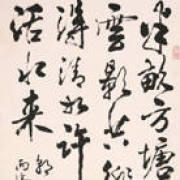 半畝方塘
雲影共徘
得清如許
活水来